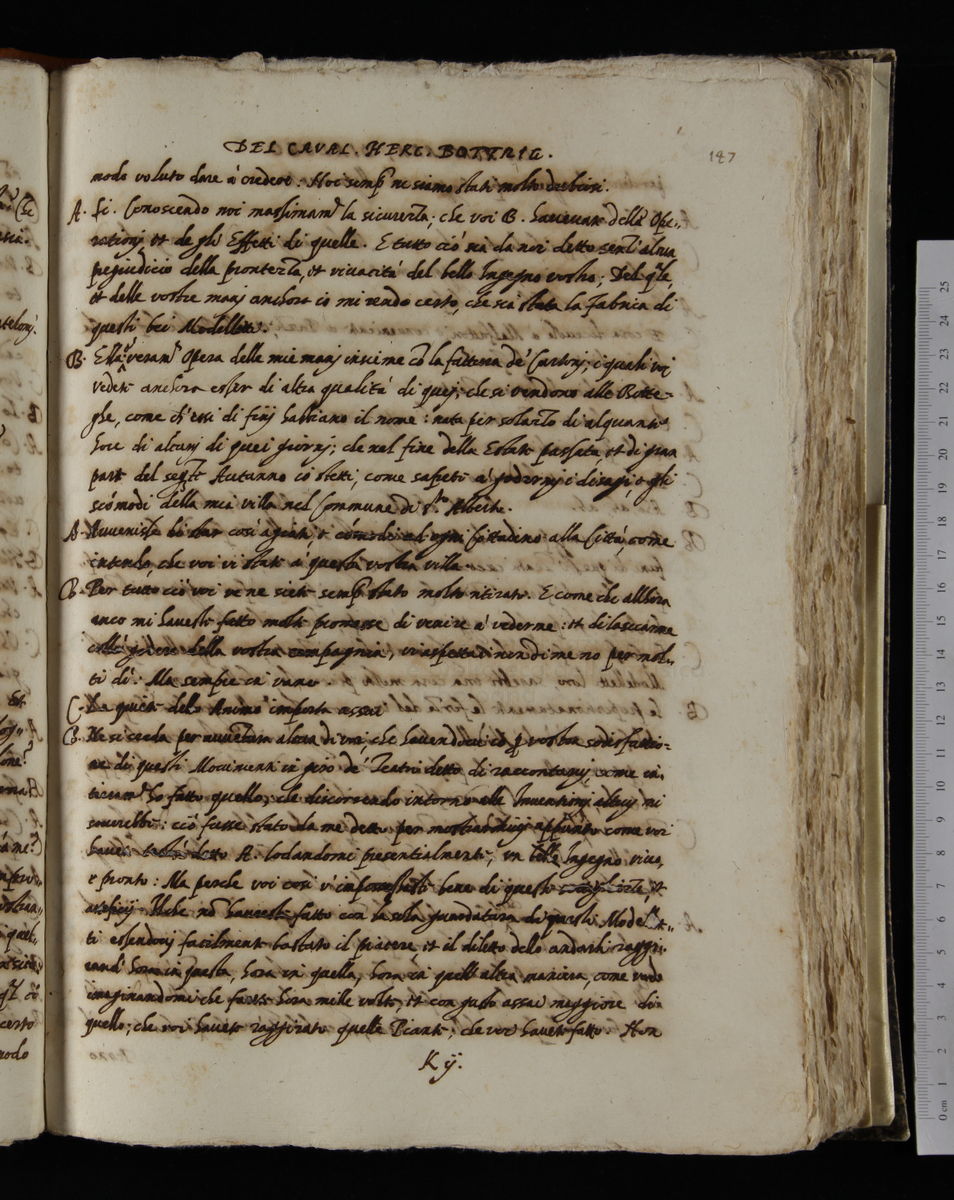 DEL CAVAL. HERC. BOTTRIG.
187
modo voluto dare à credere. Noi semp ne siamo stati molto dubbiosi.
A. Si. Conoscendo noi massimam la sicurezza, che voi B. havevate delle Ope„
rationi et de gli Effetti di quelle. E tutto ciò sia da noi detto senz' alcun
pegiudicio della prontezza, et vivacità del bello Ingegno vostro; Del qle,
et delle vostre mani anchora io mi rendo certo, che sia stata la Fabrica di
questi bei Modelletti.
B. Ella è veram Opera delle mie mani insieme cō la fattura de' Cartoni; i quali voi
vedete anchora esser di altra qualità di quei; che si vendono alle Botte-
ghe, come ch'essi di fini habbiano il nome: nata per solazzo di alquante
hore di alcuni di quei giorni; che nel fine della Estate passata, et di gran
parte del segte Autunno io stetti, come sapete à godermi i disagi, e gli
scōmodi della mia villa nel Commune di S.to Alberto.
A. Havenisse di star così agiato, e cōmodo ad ogni Cittadino alla Città, come
intendo, che voi vi state à questa vostra villa.
B. Per tutto ciò voi ve ne siete semp stato molto ritirato. E come che allhora
anco mi haveste fatto molte promesse di venire à vederme: et di lasciarme
godere della vostra compagnia, vi aspettai indime no per mol„
ti dì: Ma sempre in vano.
C. La quiete dello Animo importa assai.
B. Ne si creda per aventura alcun di voi, che havendo io p vostra sodisfattio-
ne di questi Movimenti in giro de' Teatri detto di raccontarvi, come in„
tieram ho fatto quello; che discorrendo intorno alle Inventioni altrui mi
soverebbe: ciò fusse stato da me detto per mostrarmivi appunto come voi
havete detto A. lodandomi presentialmente, un bello Ingegno vivo,
e pronto: Ma perche voi così v'informaste bene di questi et
artificij. Ilche nō havereste fatto con la sola guardatura di questi Modellet„
ti essendovi facilmente bastato il piacere et il diletto dello andarli raggi„
rando hora in questa, hora in quella, hora in quell' altra maniera, come vado
imaginandomi che farete hora mille volte, et con gusto assai maggiore di
quello; che voi havete raggirato quelle Piante; che voi havete fatto. Hor
K ij.